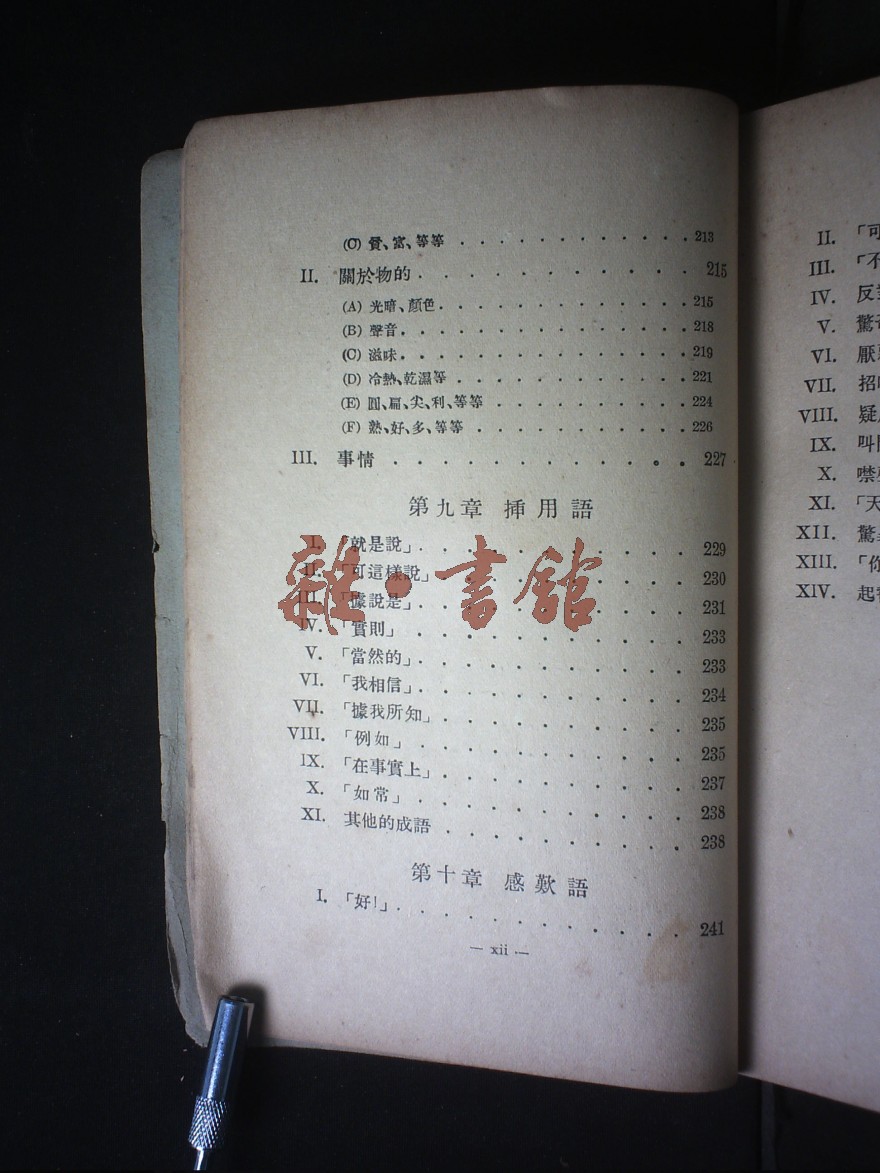 (C) 貧、富、等等 213
II. 關於物的 215
(A) 光暗、顏色 215
(B) 聲音 218
(C) 滋味 219
(D) 冷熱、乾濕等 221
(E) 圓、扁、尖、利、等等 224
(F) 熟、好、多、等等 226
III. 事情 227
第九章 挿用語
I. 「就是說」 229
II. 「可這樣說」 230
III. 「據說是」 231
IV. 「實則」 233
V. 「當然的」 233
VI. 「我相信」 234
VII. 「據我所知」 235
VIII. 「例如」 235
IX. 「在事實上」 237
X. 「如常」 238
XI. 其他的成語 238
第十章 感歎語
I. 「好!」 241
— xii —
雜·書館
II. 「可
III. 「不
IV. 反
V. 驚
VI. 厭
VII. 招
VIII. 疑
IX. 叫
X. 噤
XI. 「天
XII. 驚
XIII. 「你
XIV. 起